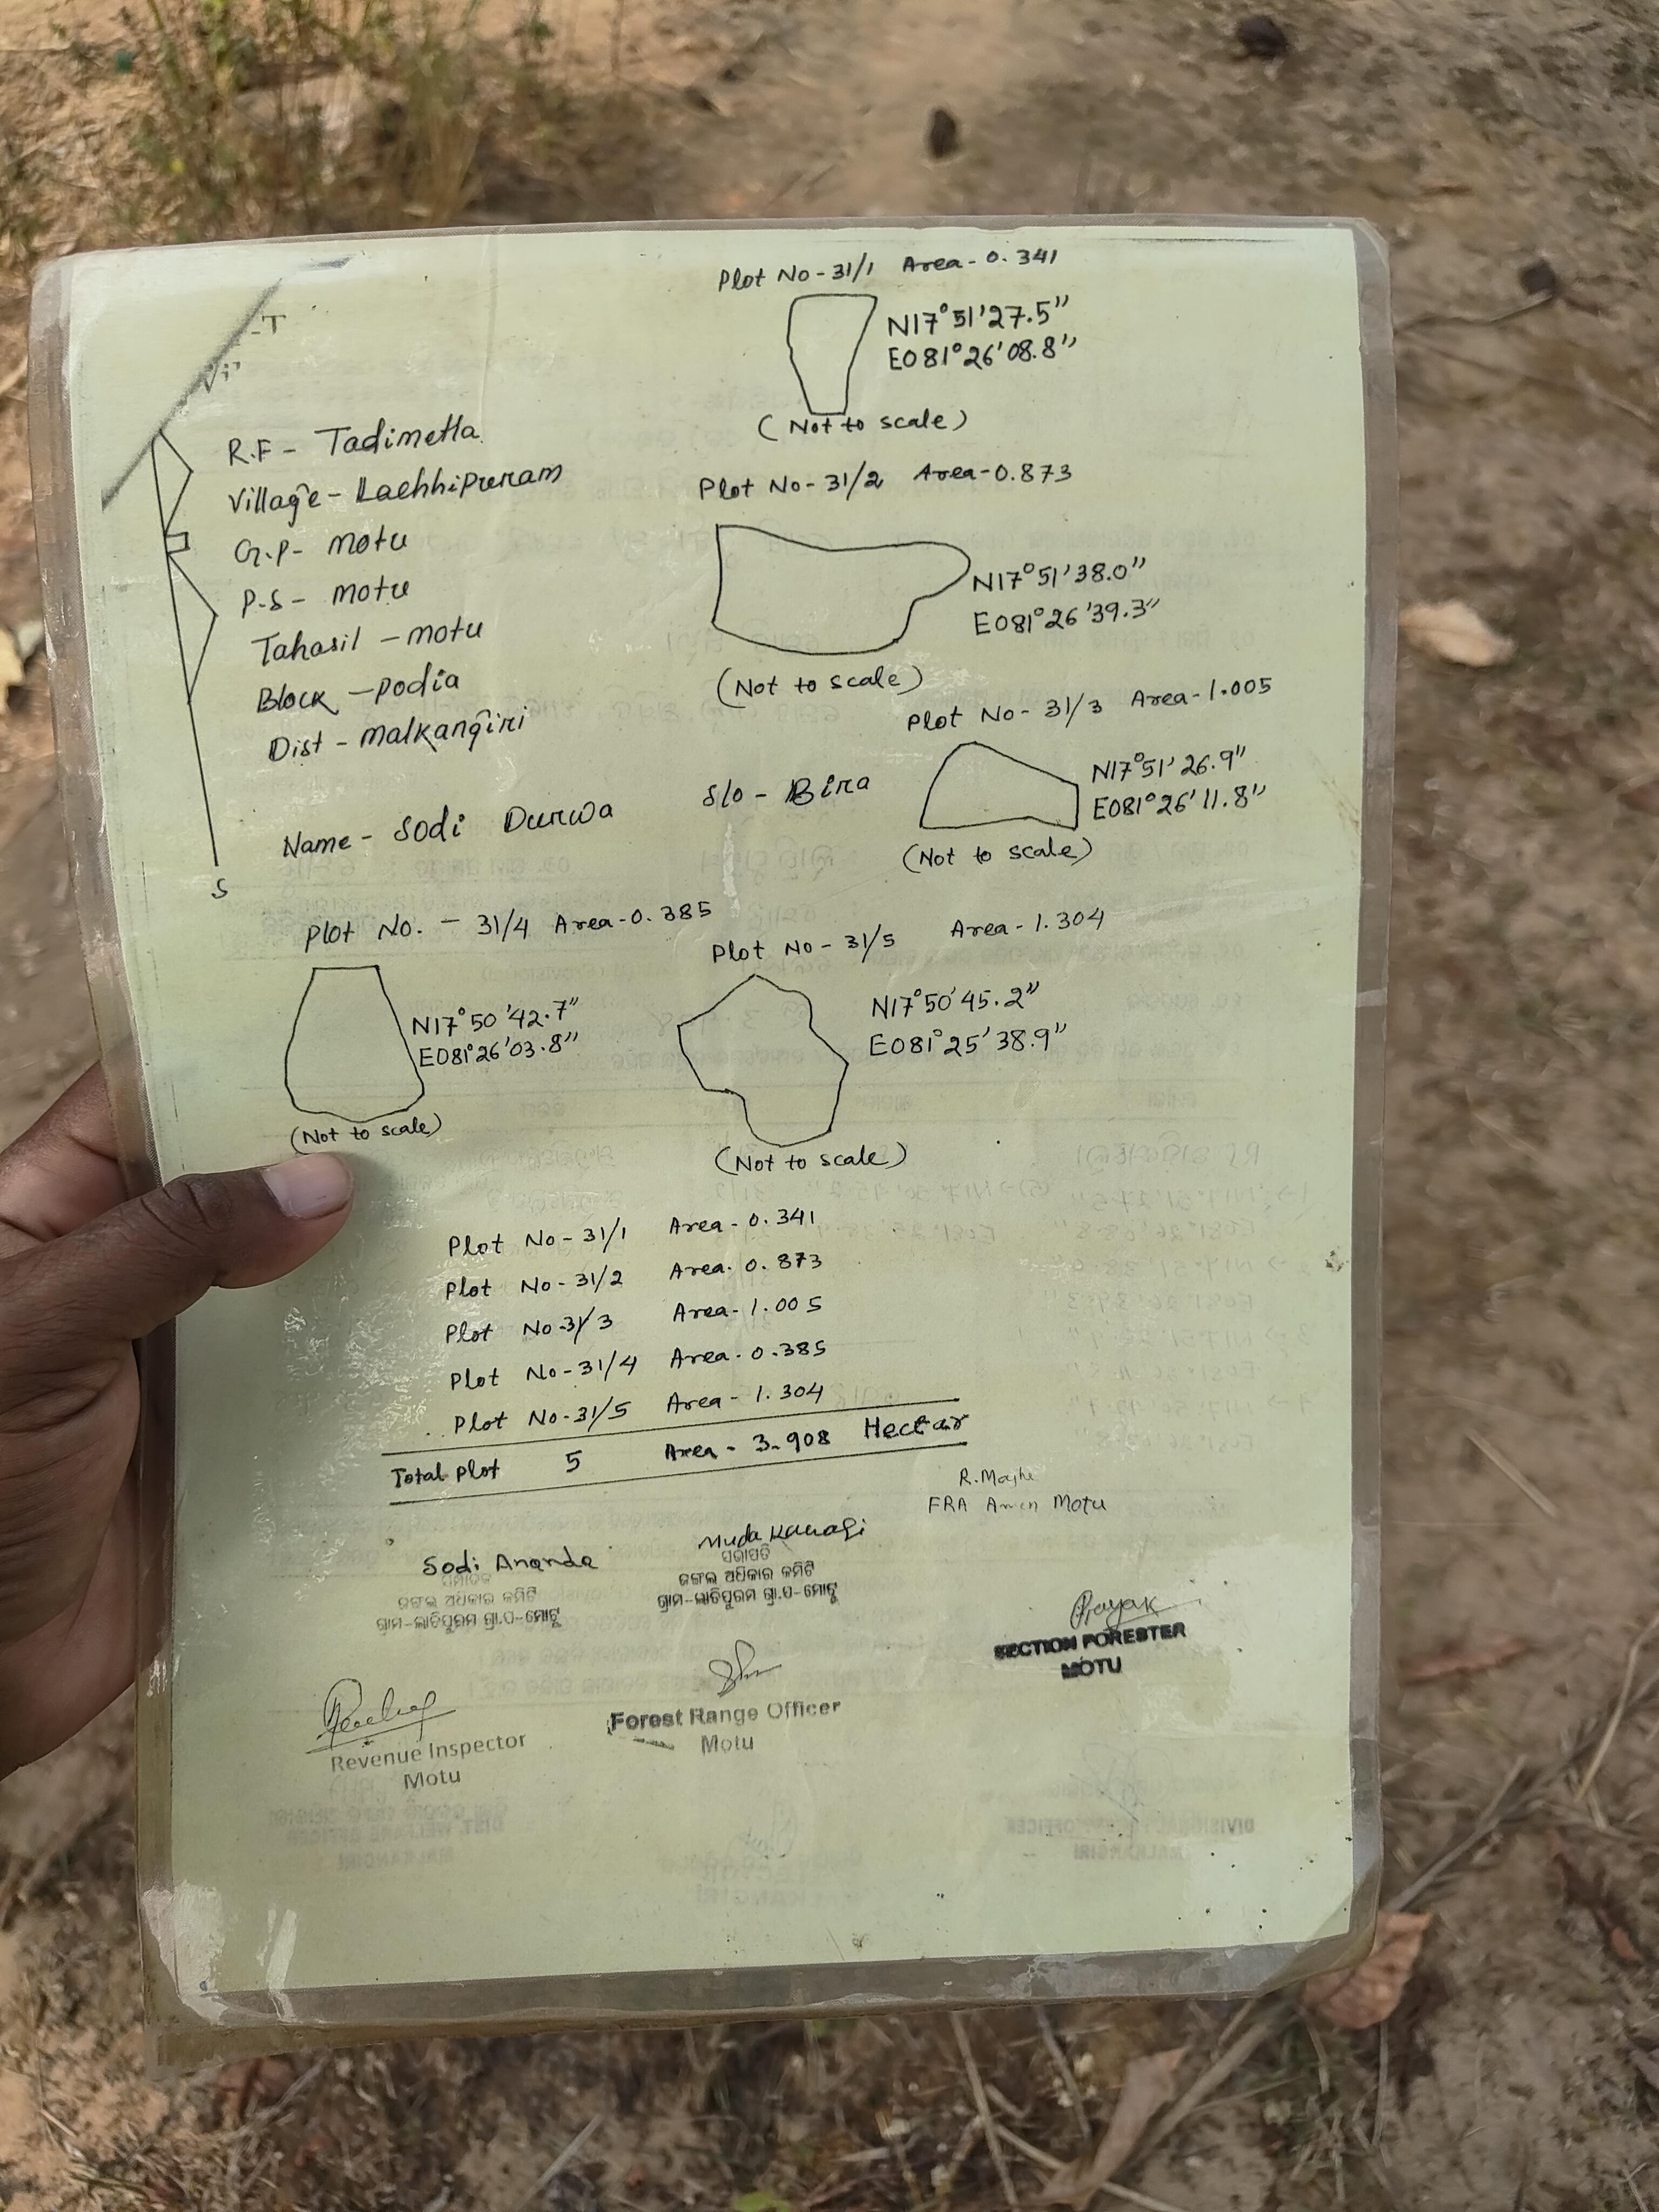 Plot No-31/1 Area-0.341
N17°51'27.5"
E081°26'08.8"
(Not to scale)
R.F - Tadimetla
Village - Lachhipuram
G.P - Motu
P.S - Motu
Tahasil - Motu
Block - Podia
Dist - Malkangiri
Plot No-31/2 Area-0.873
N17°51'38.0"
E081°26'39.3"
(Not to scale)
Plot No-31/3 Area-1.005
N17°51'26.9"
E081°26'11.8"
(Not to scale)
Name - Sodi Durwa S/o - Bira
S
Plot No. - 31/4 Area-0.385
N17°50'42.7"
E081°26'03.8"
(Not to scale)
Plot No-31/5 Area-1.304
N17°50'45.2"
E081°25'38.9"
(Not to scale)
Plot No-31/1 Area-0.341
Plot No-31/2 Area-0.873
Plot No-31/3 Area-1.005
Plot No-31/4 Area-0.385
Plot No-31/5 Area-1.304
Total Plot 5 Area-3.908 Hectar
FRA Amin Motu
Sodi Ananda
ଜଙ୍ଗଲ ଅଧିକାର କମିଟି
ଗ୍ରାମ-ଲାଚିପୁରମ ଗ୍ରା.ପ-ମୋଟୁ
ସଭାପତି
ଜଙ୍ଗଲ ଅଧିକାର କମିଟି
ଗ୍ରାମ-ଲାଚିପୁରମ ଗ୍ରା.ପ-ମୋଟୁ
SECTION FORESTER
MOTU
Forest Range Officer
Motu
Revenue Inspector
Motu